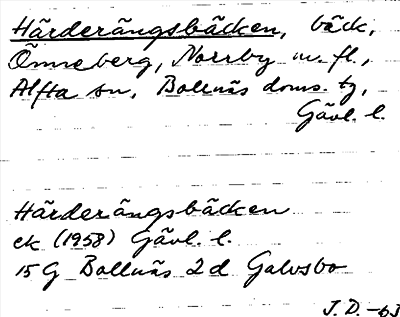 Härderängsbäcken, bäck,
Önneberg, Norrby m. fl.,
Alfta sn, Bollnäs doms. tg,
Gävl. l.
Härderängsbäcken
ek (1958) Gävl. l.
15 G Bollnäs 2d Galvsbo
J. D. -63